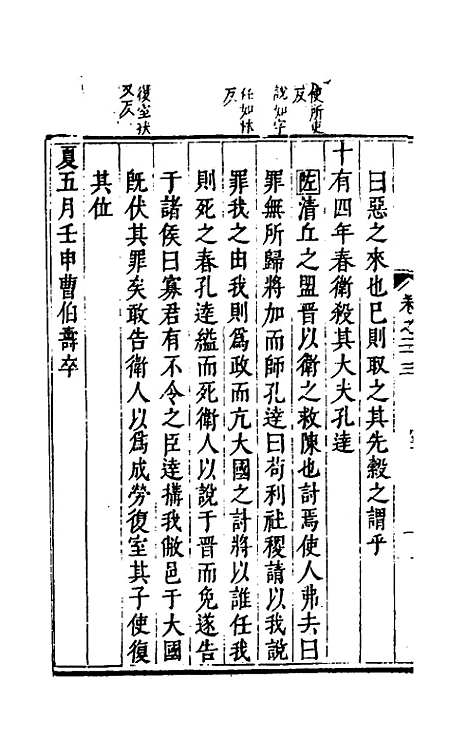 使所吏
反
說如字
任如林
反
復室扶
又反
卷之二十三
曰惡之來也已則取之其先縠之謂乎
十有四年春衛殺其大夫孔達
左清丘之盟晉以衛之救陳也討焉使人弗去曰
罪無所歸將加而師孔達曰苟利社稷請以我說
罪我之由我則爲政而亢大國之討將以誰任我
則死之春孔達縊而死衛人以說于晉而免遂告
于諸侯曰寡君有不令之臣達搆我敝邑于大國
旣伏其罪矣敢告衛人以爲成勞復室其子使復
其位
夏五月壬申曹伯壽卒